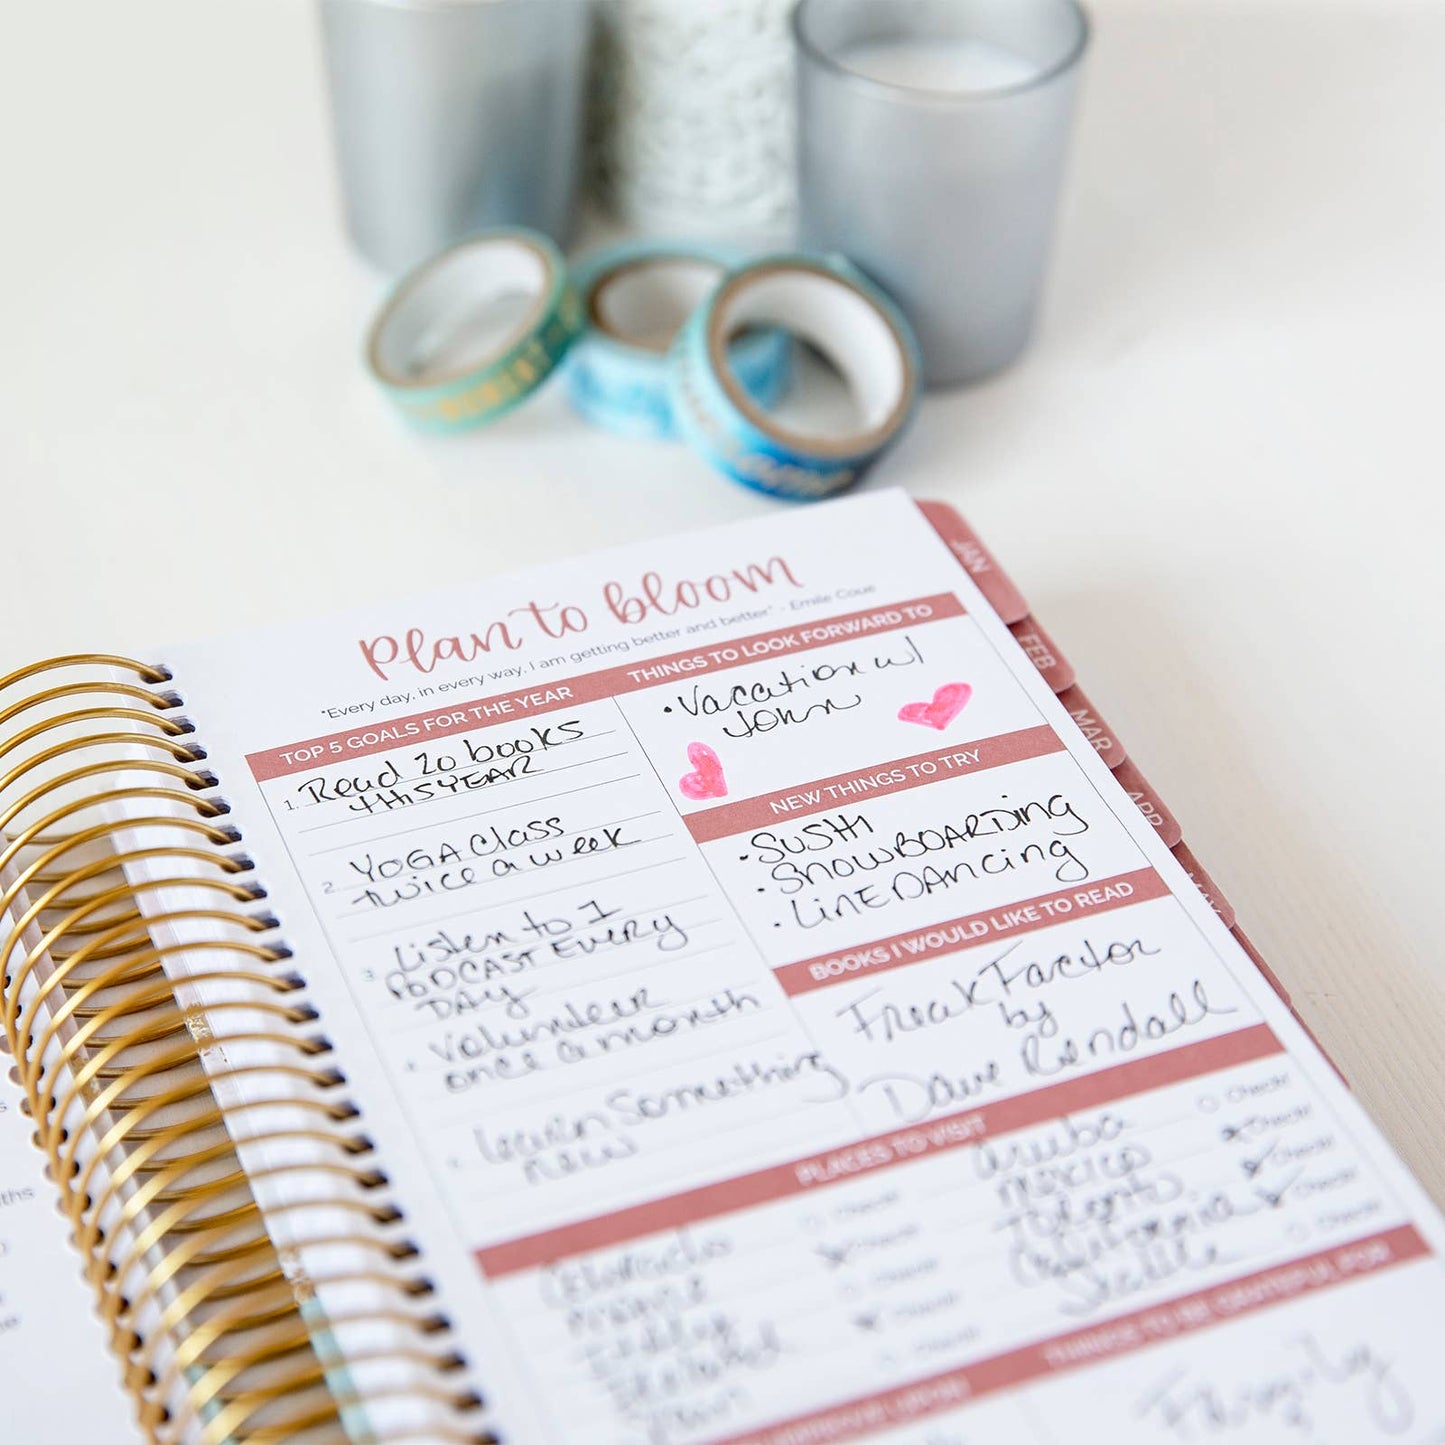 Plan to bloom
"Every day, in every way, I am getting better and better" - Emile Coue
TOP 5 GOALS FOR THE YEAR
1. Read 20 books
this YEAR
2. YOGA Class
twice a week
3. Listen to 1
PODCAST EVERY
DAY
Volunteer
once a month
Learn Something
new
THINGS TO LOOK FORWARD TO
• Vacation w/
John
NEW THINGS TO TRY
• SUSHI
• SNOWBOARDING
• LINEDANCING
BOOKS I WOULD LIKE TO READ
Freak Factor
by
Dave Rendall
PLACES TO VISIT
Colorado
Check!
Check!
Check!
Check!
Check!
Aruba
Check!
Mexico
Check!
Toronto
Check!
California
Check!
Seattle
Check!
THINGS TO BE GRATEFUL FOR
Family
JAN
FEB
MAR
APR
MAY